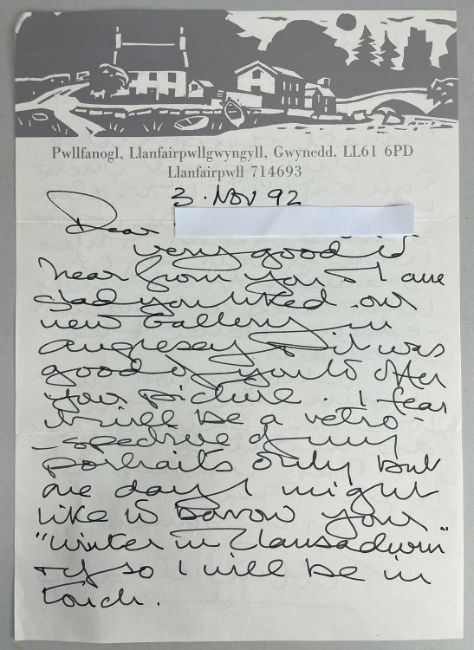 Pwllfanogl, Llanfairpwllgwyngyll, Gwynedd. LL61 6PD
Llanfairpwll 714693
3. Nov 92
Dear
very good to
hear from you & I am
glad you liked our
new Gallery in
anglesey & it was
good of you to offer
your picture. I fear
it will be a retro-
-spective of my
portraits only but
one day I might
like to borrow your
"Winter in Llansadwrn"
& if so I will be in
touch.